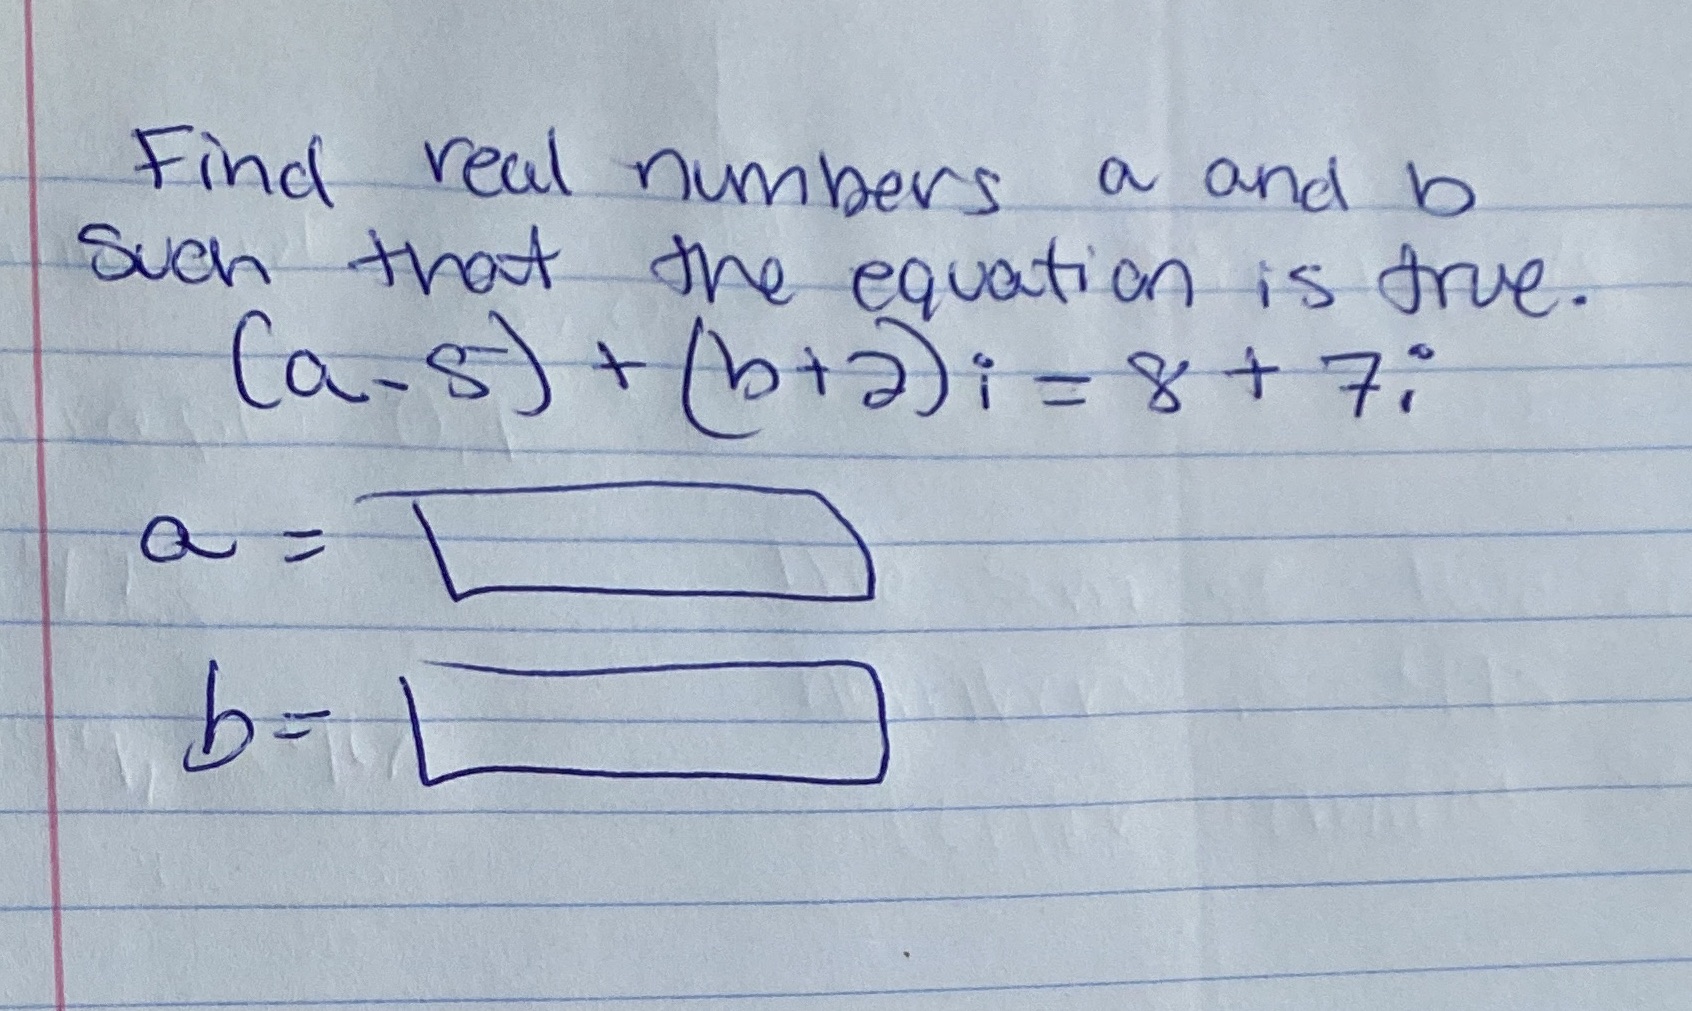 Find real numbers a and b
such that the equation is true.
(a-5) + (b+2)i = 8 + 7i
a =
b=